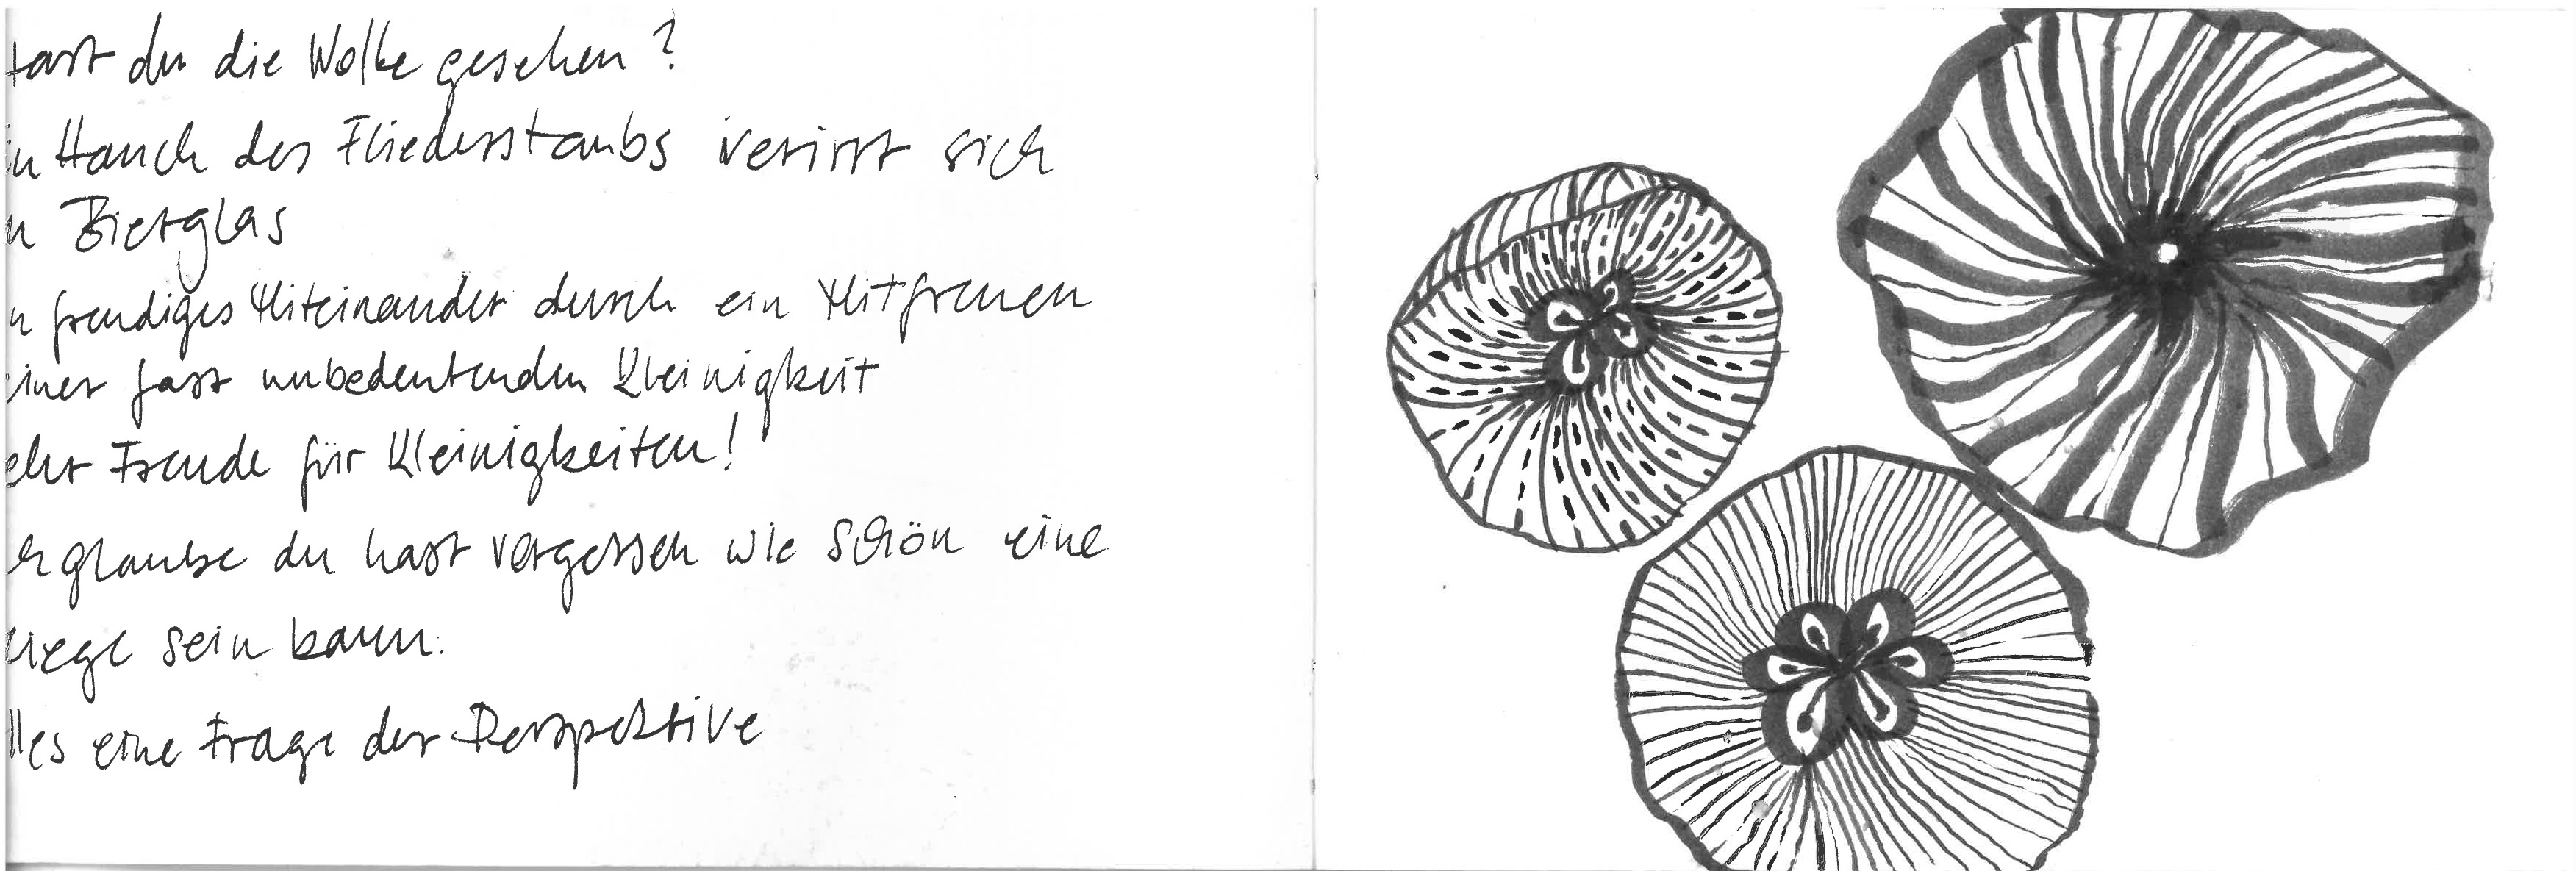 Hast du die Wolke gesehen?
in Hauch des Fliederstaubs verirrt sich
n Bierglas
n freudiges Miteinander durch ein Mitfreuen
einer fast unbedeutenden Kleinigkeit
ehr Freude für Kleinigkeiten!
ch glaube du hast vergessen wie schön eine
liege sein kann.
lles eine Frage der Perspektive